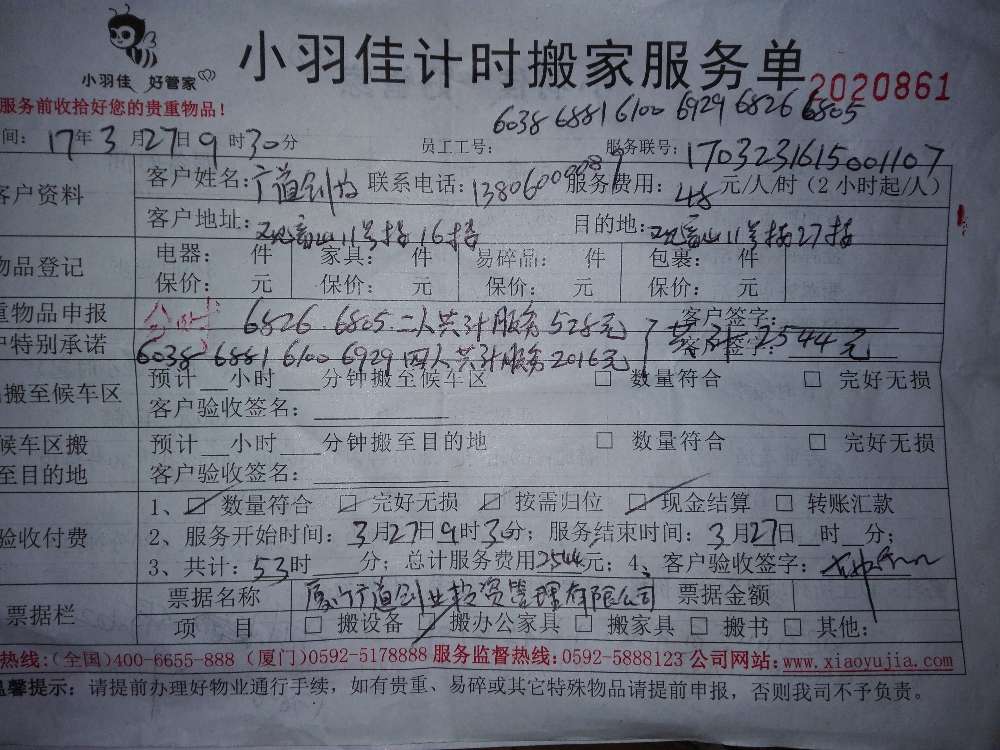 小羽佳 好管家
小羽佳计时搬家服务单
2020861
服务前收拾好您的贵重物品!
6038 6881 6100 6929 6826 6805
间: 17年3月27日9时30分 员工工号: 服务联号: 1703231615001107
客户资料
客户姓名: 广道创业 联系电话: 服务费用: 48元/人/时(2小时起/人)
客户地址: 观音山11号楼16楼 目的地: 观音山11号楼27楼
物品登记
电器: 件 家具: 件 易碎品: 件 包裹: 件
保价: 元 保价: 元 保价: 元 保价: 元
重物品申报 6826 6805二人共计服务528元 客户签字:
户特别承诺 6038 6881 6100 6929四人共计服务2016元 共计2544元 客户签字:
搬至候车区
预计__小时___分钟搬至候车区 □ 数量符合 □ 完好无损
客户验收签名:
候车区搬
至目的地
预计__小时___分钟搬至目的地 □ 数量符合 □ 完好无损
客户验收签名:
验收付费
1、☑数量符合 ☑完好无损 ☑按需归位 ☑现金结算 □转账汇款
2、服务开始时间: 3月27日9时30分; 服务结束时间: 3月27日__时__分;
3、共计: 53时 分; 总计服务费用2544元; 4、客户验收签字:
票据栏
票据名称 厦门广道创业投资管理有限公司 票据金额
项 目 □搬设备 ☑搬办公家具 □搬家具 □搬书 □其他:
热线:(全国)400-6655-888 (厦门)0592-5178888 服务监督热线:0592-5888123 公司网站:www.xiaoyujia.com
温馨提示: 请提前办理好物业通行手续,如有贵重、易碎或其它特殊物品请提前申报,否则我司不予负责。